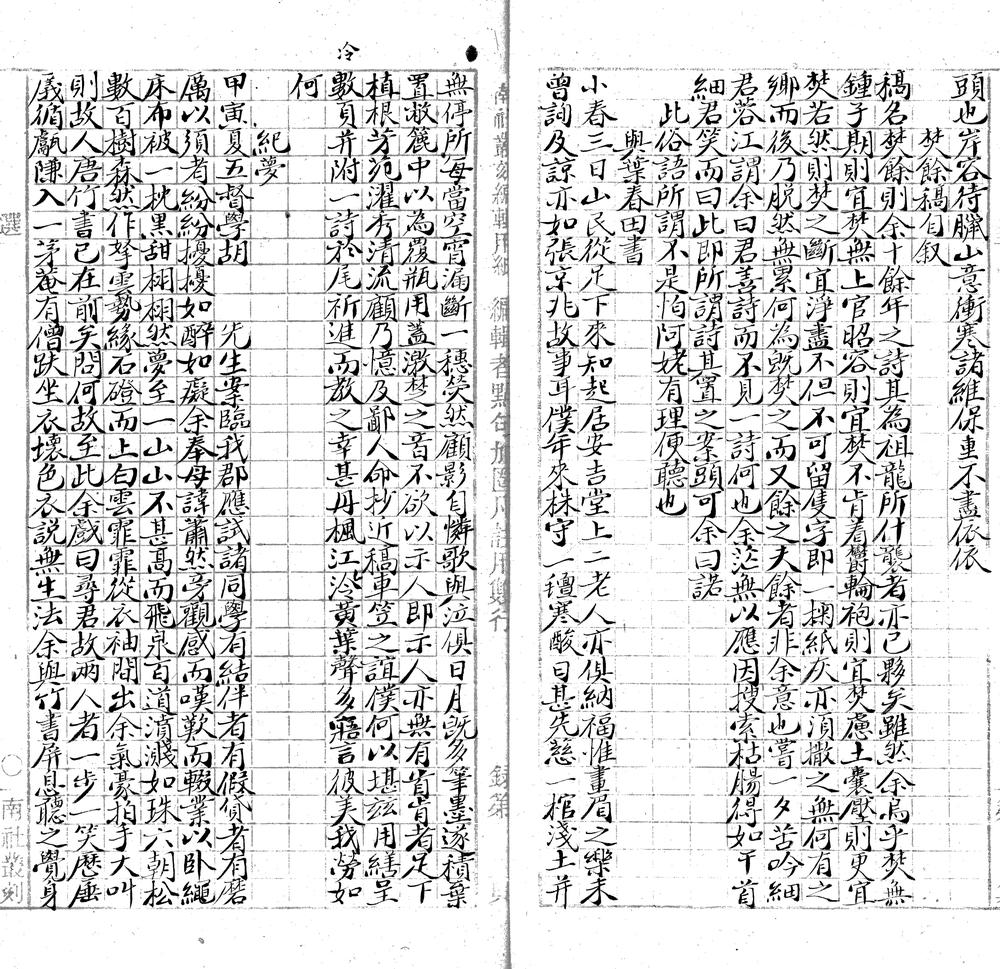 頭也岸容待臘山意衝寒諸維保重不盡依依
焚餘稿自叙
稿名焚餘則余十餘年之詩其為祖龍所什襲者亦已夥矣雖然余烏乎焚無
鍾子期則宜焚無上官昭容則宜焚不肯着鬱輪袍則宜焚慮土囊壓則更宜
焚若然則焚之斷宜淨盡不但不可留隻字即一掬紙灰亦須撒之無何有之
鄉而後乃脫然無累何為既焚之而又餘之夫餘者非余意也嘗一夕苦吟細
君蓉江謂余曰君善詩而不見一詩何也余茫無以應因搜索枯腸得如干首
細君笑而曰此即所謂詩其置之案頭可余曰諾
此俗語所謂不是怕阿姥有理便聽也
與葉春田書
小春三日山民從足下來知起居安吉堂上二老人亦俱納福惟畫眉之樂未
曾詢及諒亦如張京兆故事耳僕年來株守一氊寒酸日甚先慈一棺淺土并
無停所每當空宵漏斷一穗熒然顧影自憐歌與泣俱日月既多筆墨遂積棄
置敝簏中以為覆瓶用蓋激楚之音不欲以示人即示人亦無有肯肯者足下
植根芳苑濯秀清流顧乃憶及鄙人命抄近稿車笠之誼僕何以堪茲用繕呈
數頁并附一詩於尾祈進而教之幸甚丹楓江冷黃葉聲多寤言彼美我勞如
何
紀夢
甲寅夏五督學胡　先生案臨我郡應試諸同學有結伴者有假貸者有磨
厲以須者紛紛擾擾如醉如癡余奉母諱蕭然旁觀感而嘆歎而輟業以臥繩
床布被一枕黑甜栩栩然夢至一山山不甚高而飛泉百道濆濺如珠六朝松
數百樹森然作拏雲勢緣石磴而上白雲霏霏從衣袖間出余氣豪拍手大叫
則故人唐竹書已在前矣問何故至此余戲曰尋君故兩人者一步一笑歷崖
戺循巘隒入一茅菴有僧趺坐衣壞色衣說無生法余與竹書屏息聽之覺身
冷
南社叢刻編輯用紙
編輯者點句加圈凡註用雙行
選
〇
南社叢刻